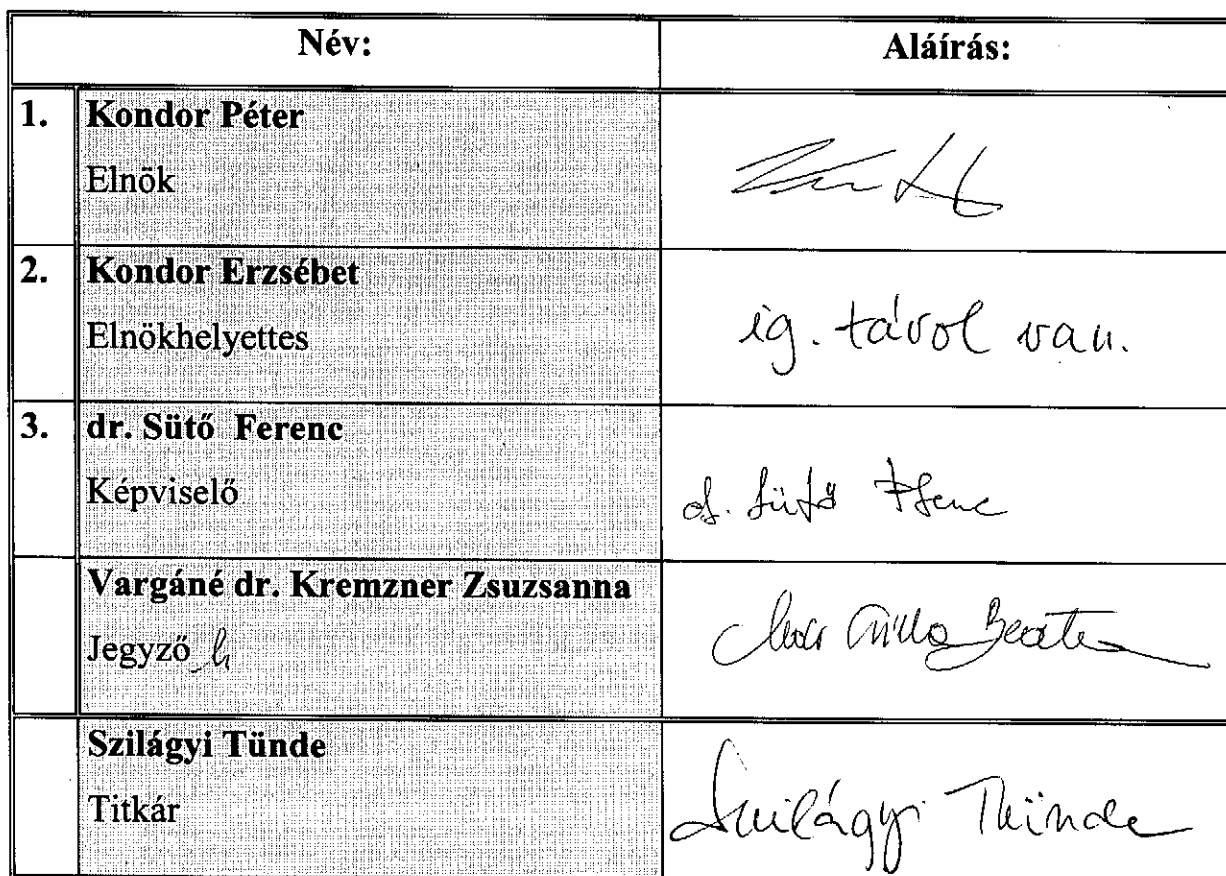 Név: Aláírás:
1. Kondor Péter
Elnök
2. Kondor Erzsébet
Elnökhelyettes
ig. távol van.
3. dr. Sütő Ferenc
Képviselő
dr. Sütő Ferenc
Vargáné dr. Kremzner Zsuzsanna
Jegyző h
Beáta
Szilágyi Tünde
Titkár
Szilágyi Tünde